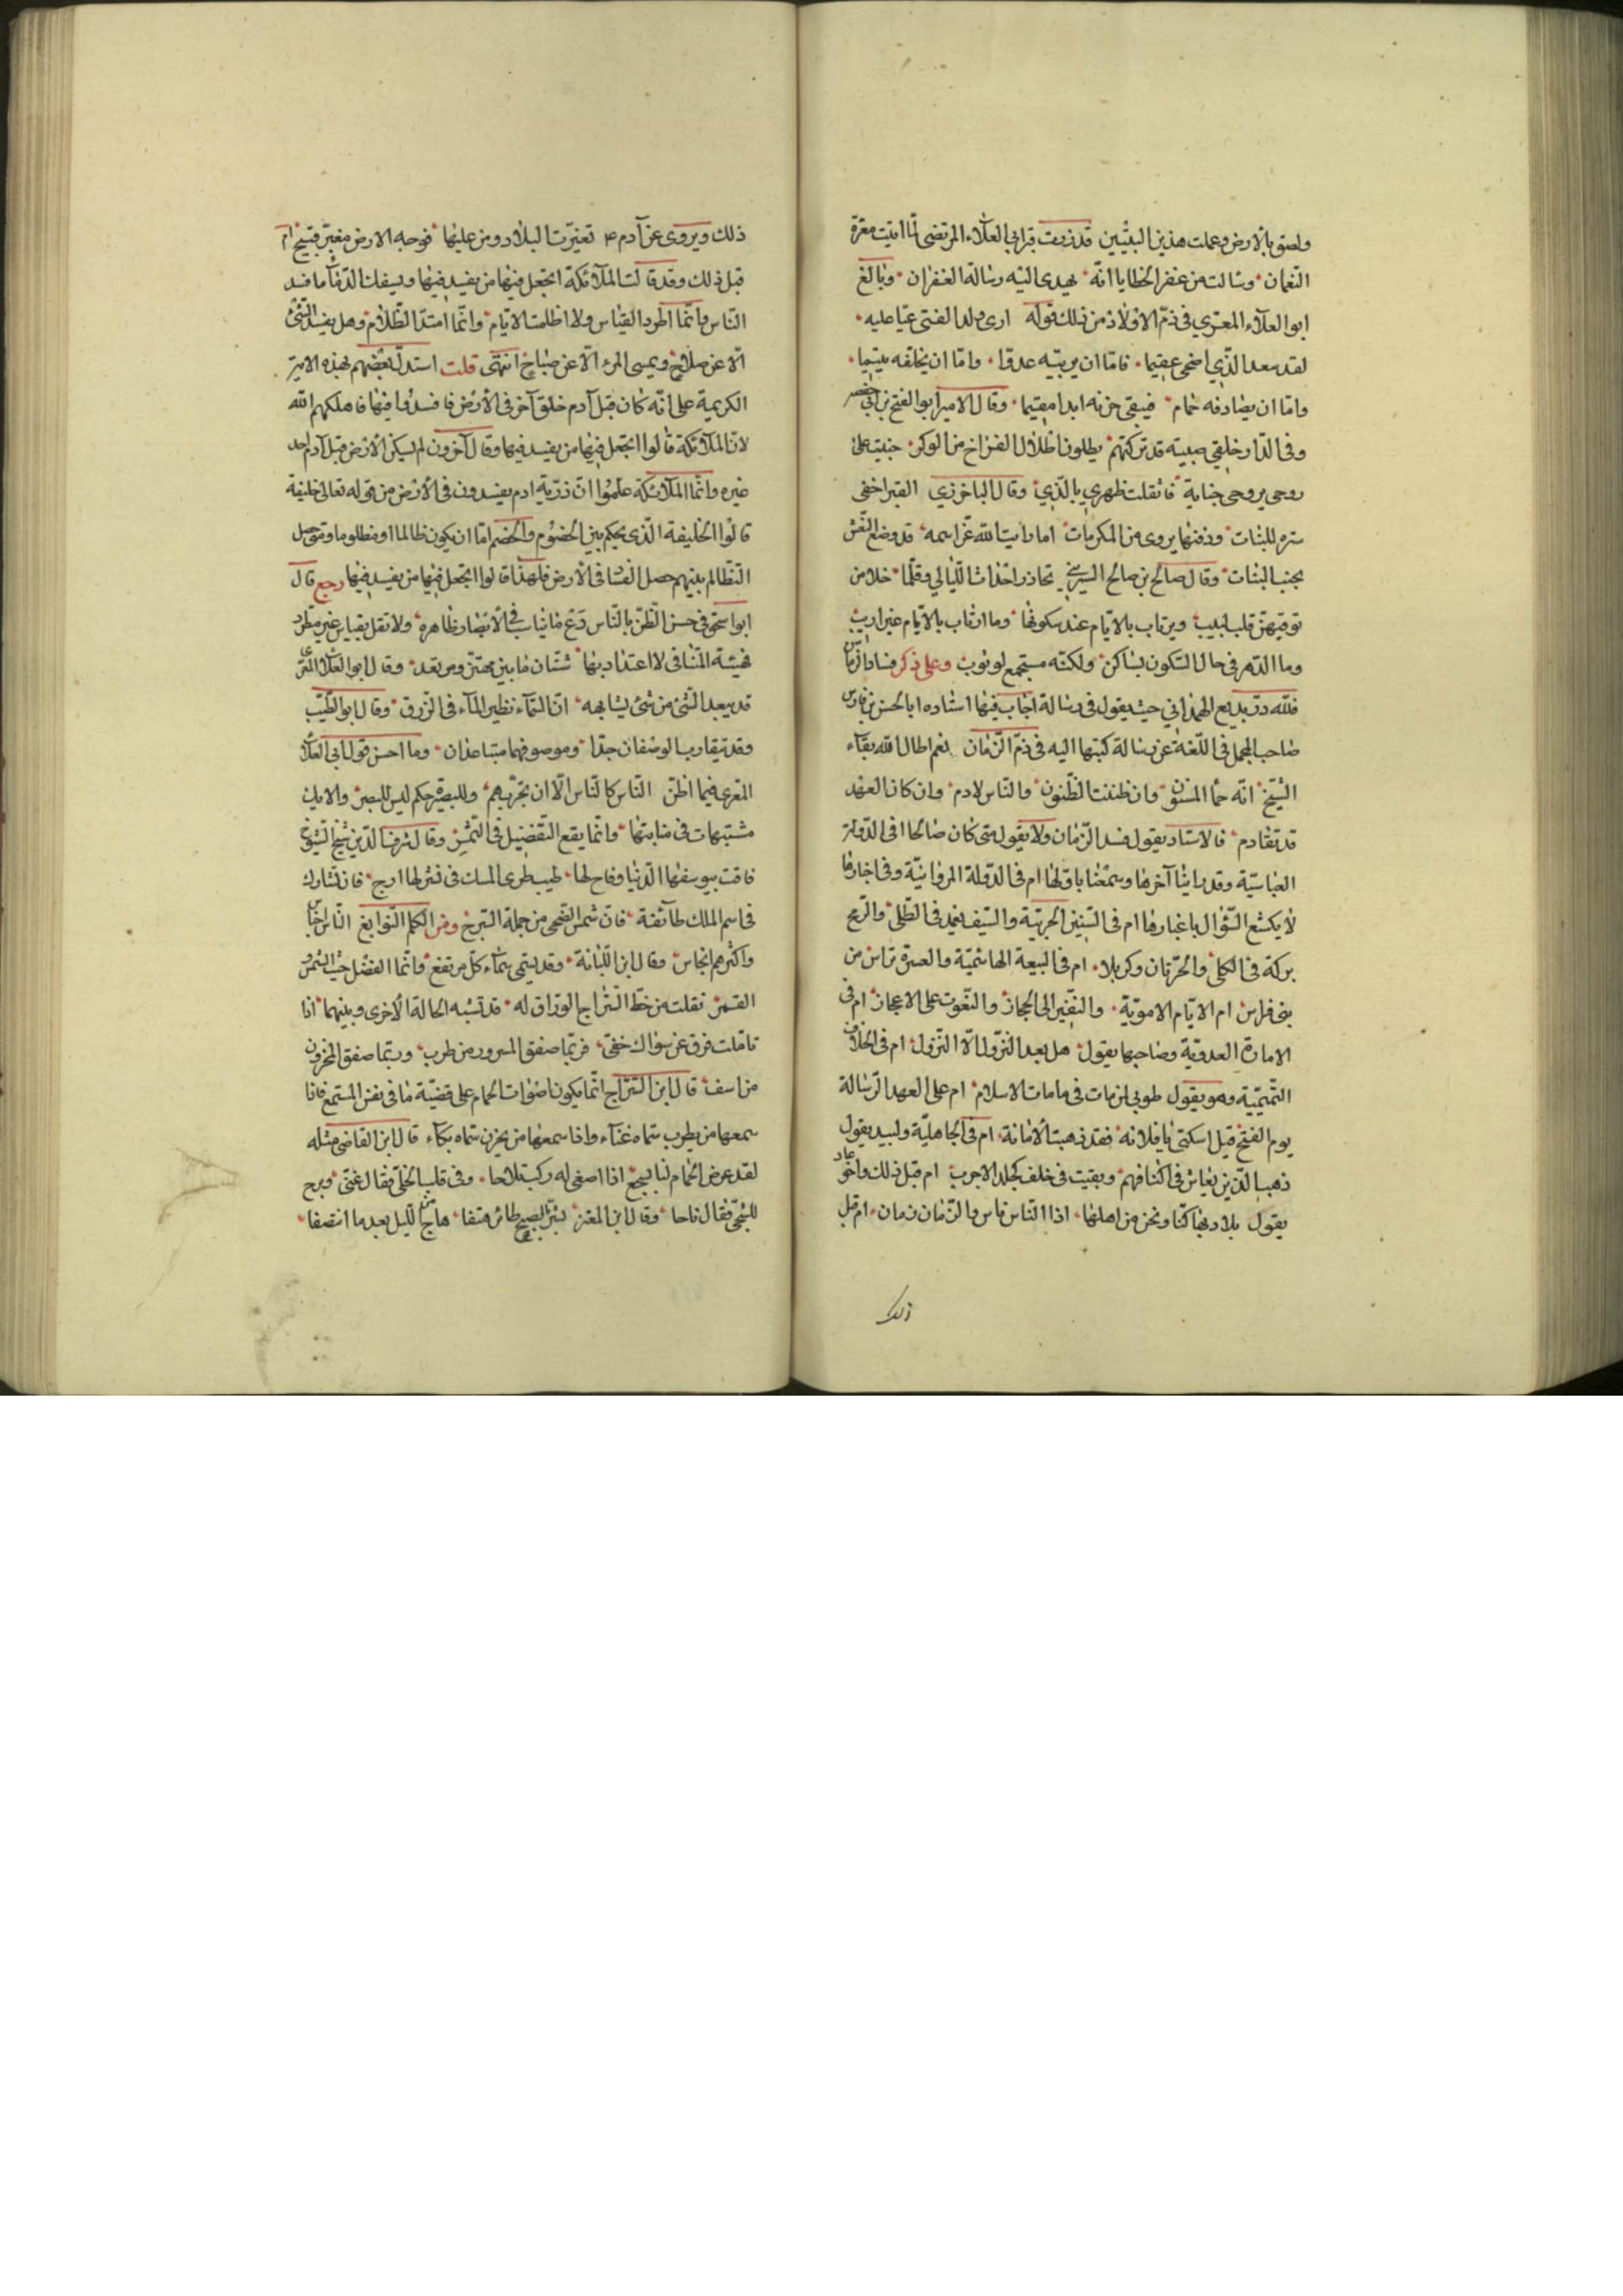 ولصق بالارض وعملت هذين البيتين قد زرت قبر ابي العلاء المرتضى لما اتيت معرة
النعمان وسالت من غفر الخطايا انه يهدي اليه رسالة الغفران وبالغ
ابو العلاء المعري في ذم الاولاد من ذلك قوله ارى ولد الفتى عبا عليه
لقد سعد الذي اضحى عقيما فاما ان يربيه عدوا واما ان يخلفه يتيما
واما ان يصادفه حمام فيبقى حزنه ابدا مقيما وقال الامير ابو الفتح بن ابي حصينة
وفي الدار خلفي صبية قد تركتهم يطلون اطلال الفراخ من الوكر جنيت على
روحي بروحي جناية فاثقلت ظهري بالذي وقال الباخرزي القبر اخفى
سترة للبنات ودفنها يروى من المكرمات اما رايت الله عز اسمه قد وضع النعش
بجنب البنات وقال صالح بن صالح تحاذر احداث الليالي وقلما خلا من
توقيهن قلب لبيب ويرتاب بالايام عند سكونها وما ارتاب بالايام غير اريب
وما الدهر في حال السكون بساكن ولكنه مستجمع لوثوب وعلى ذكر فساد الزمان
فلله در بديع الهمذاني حيث يقول في رسالة اجاب فيها استاده ابا الحسن بن فارس
صاحب المجمل في اللغة عن رسالة كتبها اليه في ذم الزمان نعم اطال الله بقاء
الشيخ انه حمأ المسنون وان ظننت الظنون والناس لادم وان كان العهد
قد تقادم فالاستاد يقول فسد الزمان ولا يقول متى كان صالحا افي الدولة
العباسية وقد راينا آخرها وسمعنا باولها ام في الدولة المروانية وفي اخبارها
لا يكسع الشؤال باغبارها ام في السنين الحربية والسيف يغمد في الطلى والرمح
يركة في الكلى والحرتان وكربلا ام في البيعة الهاشمية والعسرة تراس من
بني فراس ام الايام الاموية والنفير الى الحجاز والنعوت على الاعجاز ام في
الامارة العدوية وصاحبها يقول هل بعد النزول الا النزول ام في الخلافة
التميمية وهو يقول طوبى لمن مات في مامات الاسلام ام على العهد الرسالة
يوم الفتح قيل اسكتي يا فلانه فقد ذهبت الامانة ام في الجاهلية ولبيد يقول
ذهب الذين يعاش في اكنافهم وبقيت في خلف كجلد الاجرب ام قبل ذلك واخو عاد
يقول بلاد بها كنا ونحن من اهلها اذا الناس ناس والزمان زمان ام قبل
ذلك
ذلك ويروى عن آدم ع تغيرت البلاد ومن عليها فوجه الارض مغبر قبيح ام
قبل ذلك وقد قالت الملائكة اتجعل فيها من يفسد فيها ويسفك الدمآ ما فسد
الناس وانما اطرد القياس ولا اظلمت الايام وانما امتد الظلام وهل يفسد الشئ
الا عن صلاح ويمسى المرء الا عن صباح انتهى قلت استدل بعضهم بهذه الاية
الكريمة على انه كان قبل آدم خلق آخر في الارض فافسدوا فيها فاهلكهم الله
لان الملائكة قالوا اتجعل فيها من يفسد فيها وقال آخرون لم يسكن الارض قبل آدم احد
غيره وانما الملائكة علموا ان ذرية ادم يفسدون في الارض من قوله تعالى خليفة
قالوا الخليفة الذي يحكم بين الخصوم والخصم اما ان يكون ظالما او مظلوما ومتى حصل
التظالم بينهم حصل الفساد في الارض فلهذا قالوا اتجعل فيها من يفسد فيها رجع قال
ابو اسحق في حسن الظن بالناس دع ما في الابصار ظاهره ولا تقل بقياس غير مطرد
فهيئة المنافى لا اعتداد بها شتان ما بين مهتز ومرتعد وقال ابو العلاء المعري
قد يبعد الشئ من شئ يشابهه ان السمآء نظير المآء في الزرق وقال ابو الطيب
وقد يتقارب الوصفان جدا وموصوفهما متباعدان وما احسن قول ابي العلاء
المعري فيما اظن الناس كالناس الا ان تجربهم وللبصيرة حكم ليس للبصر والايك
مشتبهات في منابتها وانما يقع التفضيل في الثمر وقال شرف الدين شيخ الشيوخ
فاقت بيوسفها الدنيا وفاح لها طيب طرى المسك في نشر لها ارج فان تشارك
في اسم الملك طآئفة فان شمس الضحى من جملة السرج ومن الكلم النوابغ الناس اجناس
واكثرهم انجاس وقال ابن اللبانة وقد يسمى سمآء كل مرتفع وانما الفضل حيث الشمس و
القمر نقلت من خط السراج الوراق له قد تشبه الحالة الاخرى وبينهما اذا
تاملت فرق عن سواك خفي فربما صفق المسرور من طرب وربما صفق المحزون
من اسف قال ابن السراج انما يكون اصوات الحمام على قضية ما في نفس المستمع فاذا
سمعها من يطرب سماه غنآء واذا سمعها من يحزن سماه بكآء قال ابن القاضي مثله
لقد عرض الحمام لنا بسجع اذا اصغى له ركب تلاحا وفي قلب الخلي فقال غنى وبرح
للشجي فقال ناحا وقال ابن المعتز بشر بالصبح طائر هتفا هاج من الليل بعد ما انتصفا